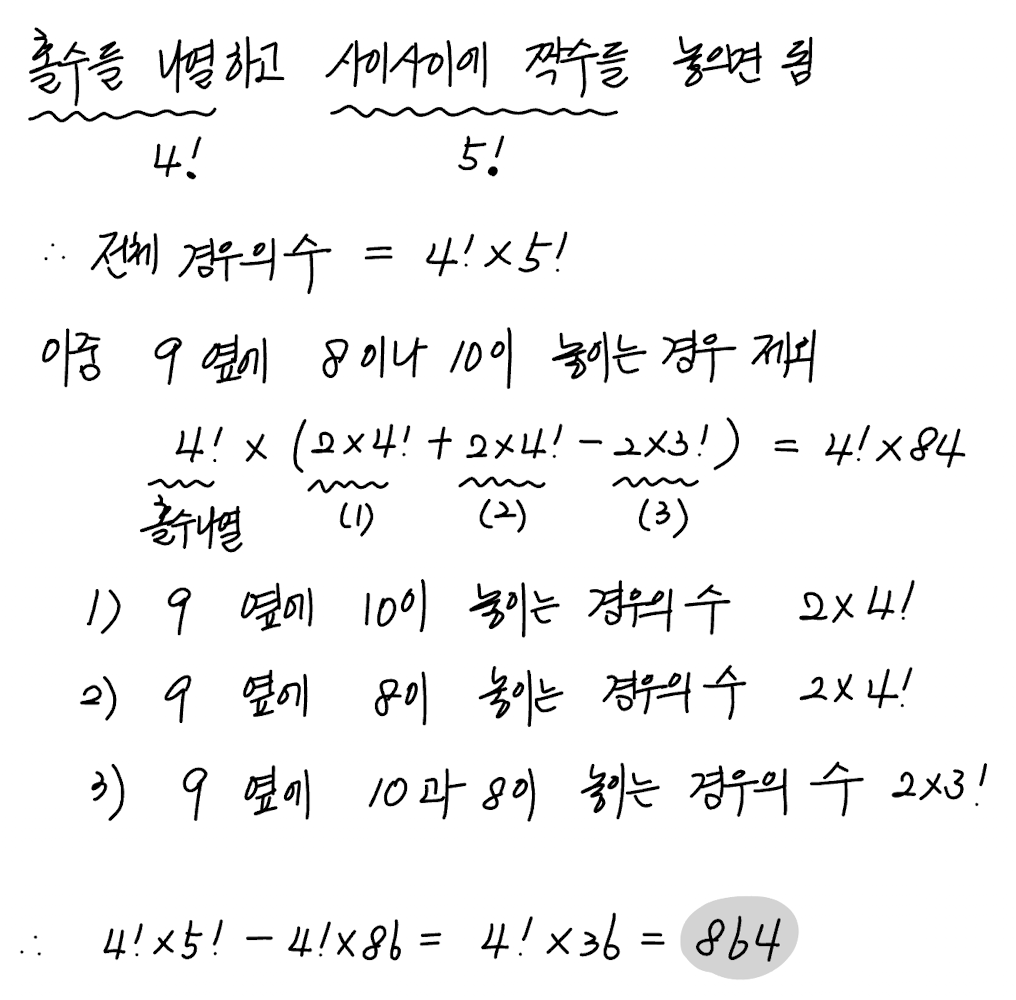 홀수를 나열하고 사이사이에 짝수를 놓으면 됨
4! 5!
∴ 전체 경우의 수 = 4! × 5!
이중 9 옆에 8이나 10이 놓이는 경우 제외
4! × (2×4! + 2×4! - 2×3!) = 4! × 84
홀수나열 (1) (2) (3)
1) 9 옆에 10이 놓이는 경우의 수 2×4!
2) 9 옆에 8이 놓이는 경우의 수 2×4!
3) 9 옆에 10과 8이 놓이는 경우의 수 2×3!
∴ 4!×5! - 4!×86 = 4! × 36 = 864